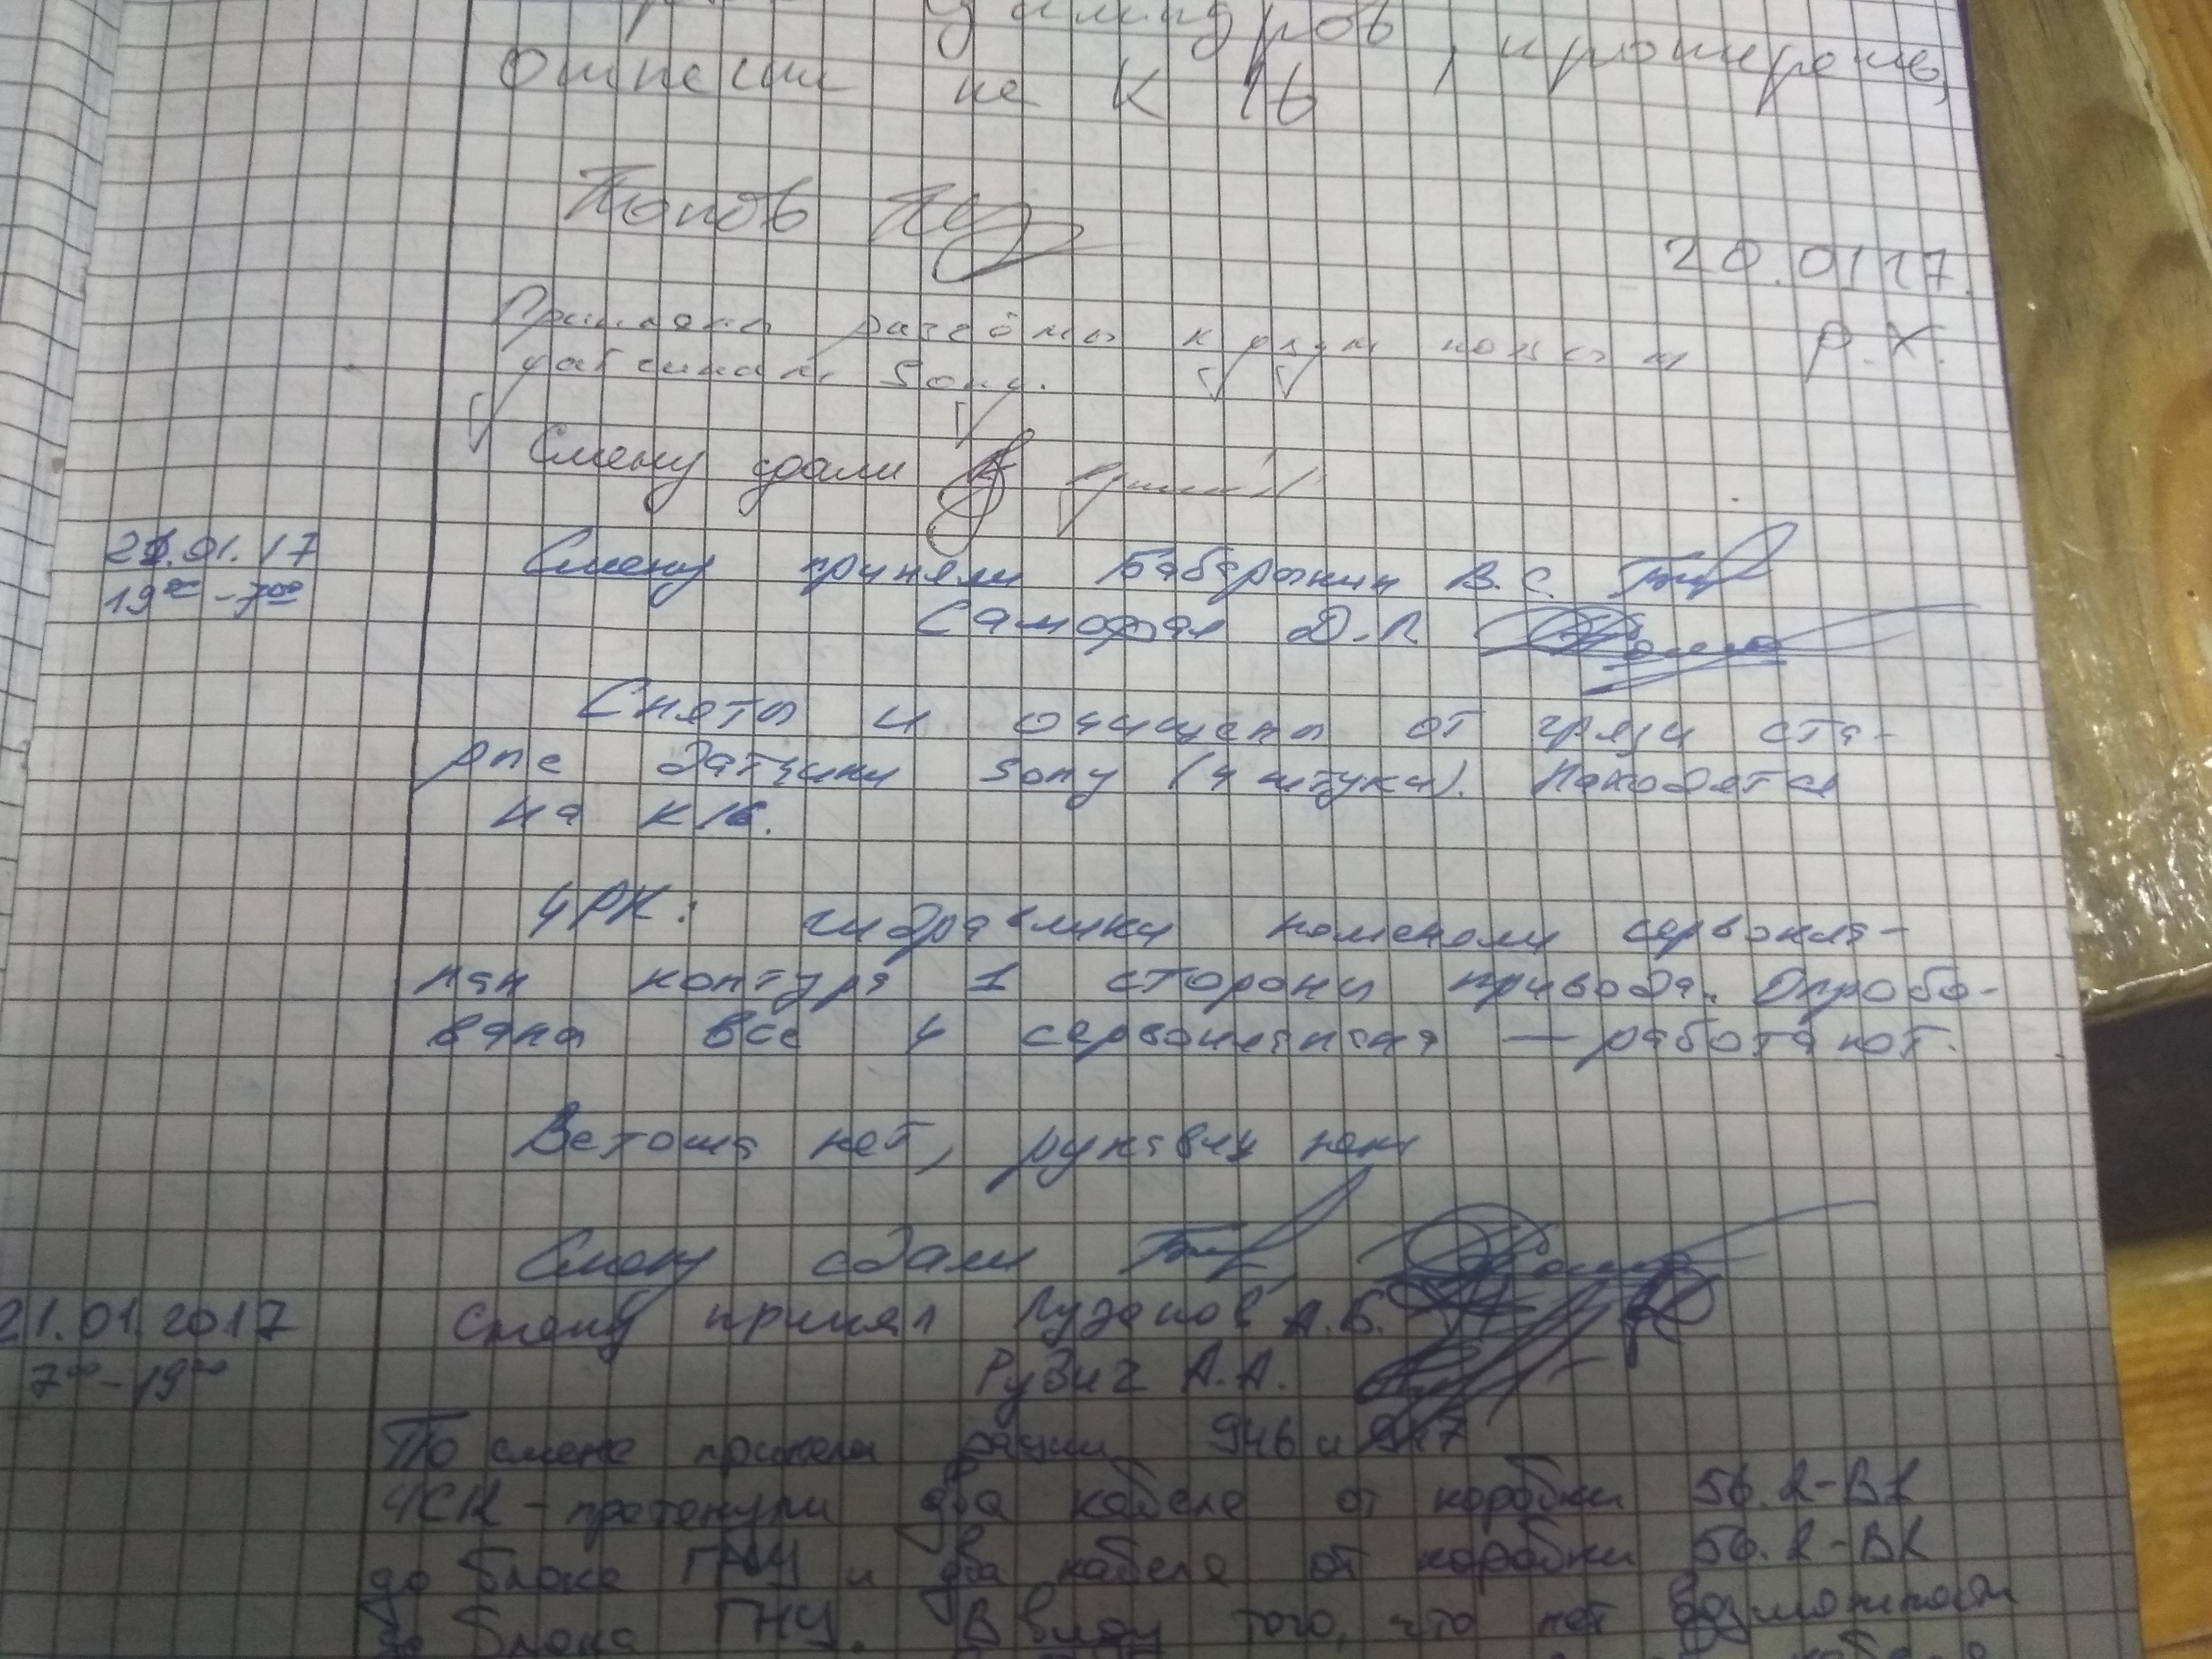 цилиндров, протерли,
Отнесли на К 16
Попов
20.01 17.
Припаяны разъёмы к двум новым Р.Х.
датчикам Sony.
Смену сдали
21.01.17
19⁰⁰-7⁰⁰
Смену приняли Бабарыкин В.С.
Самофал Д.А
Сняты и очищены от грязи ста-
рые датчики Sony (4 штуки). Находятся
на К16.
ЧРК: гидравлики поменяли сервокла-
пан контура 1 стороны привода. Опробо-
ваны все 4 сервоклапана — работают.
Ветоши нет, рукавиц нет
Смену сдали
21.01.2017
7⁰⁰-19⁰⁰
Смену принял Лузанов А.Б.
Рузич А.А.
По смене приняли рации 946 и 947
ЧСК - протянули два кабеля от коробки 56.2-В1
до блока ГНУ и два кабеля от коробки 56.2-В2
до блока ГНУ. Ввиду того, что нет возможности
кабеля